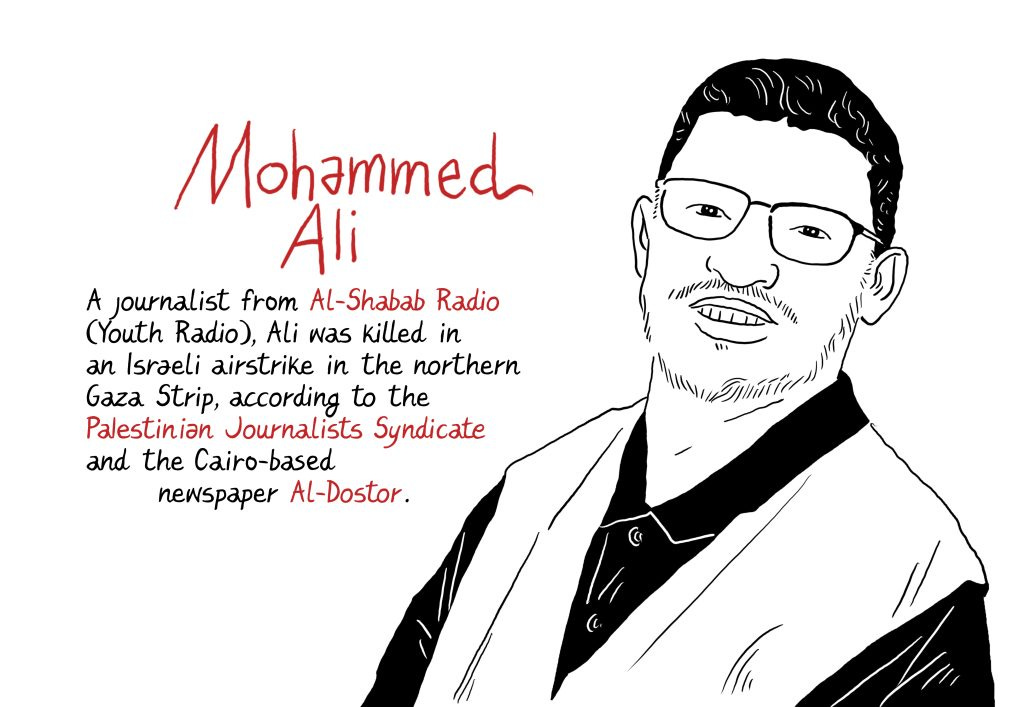 Mohammed
Ali
A journalist from Al-Shabab Radio
(Youth Radio), Ali was killed in
an Israeli airstrike in the northern
Gaza Strip, according to the
Palestinian Journalists Syndicate
and the Cairo-based
newspaper Al-Dostor.